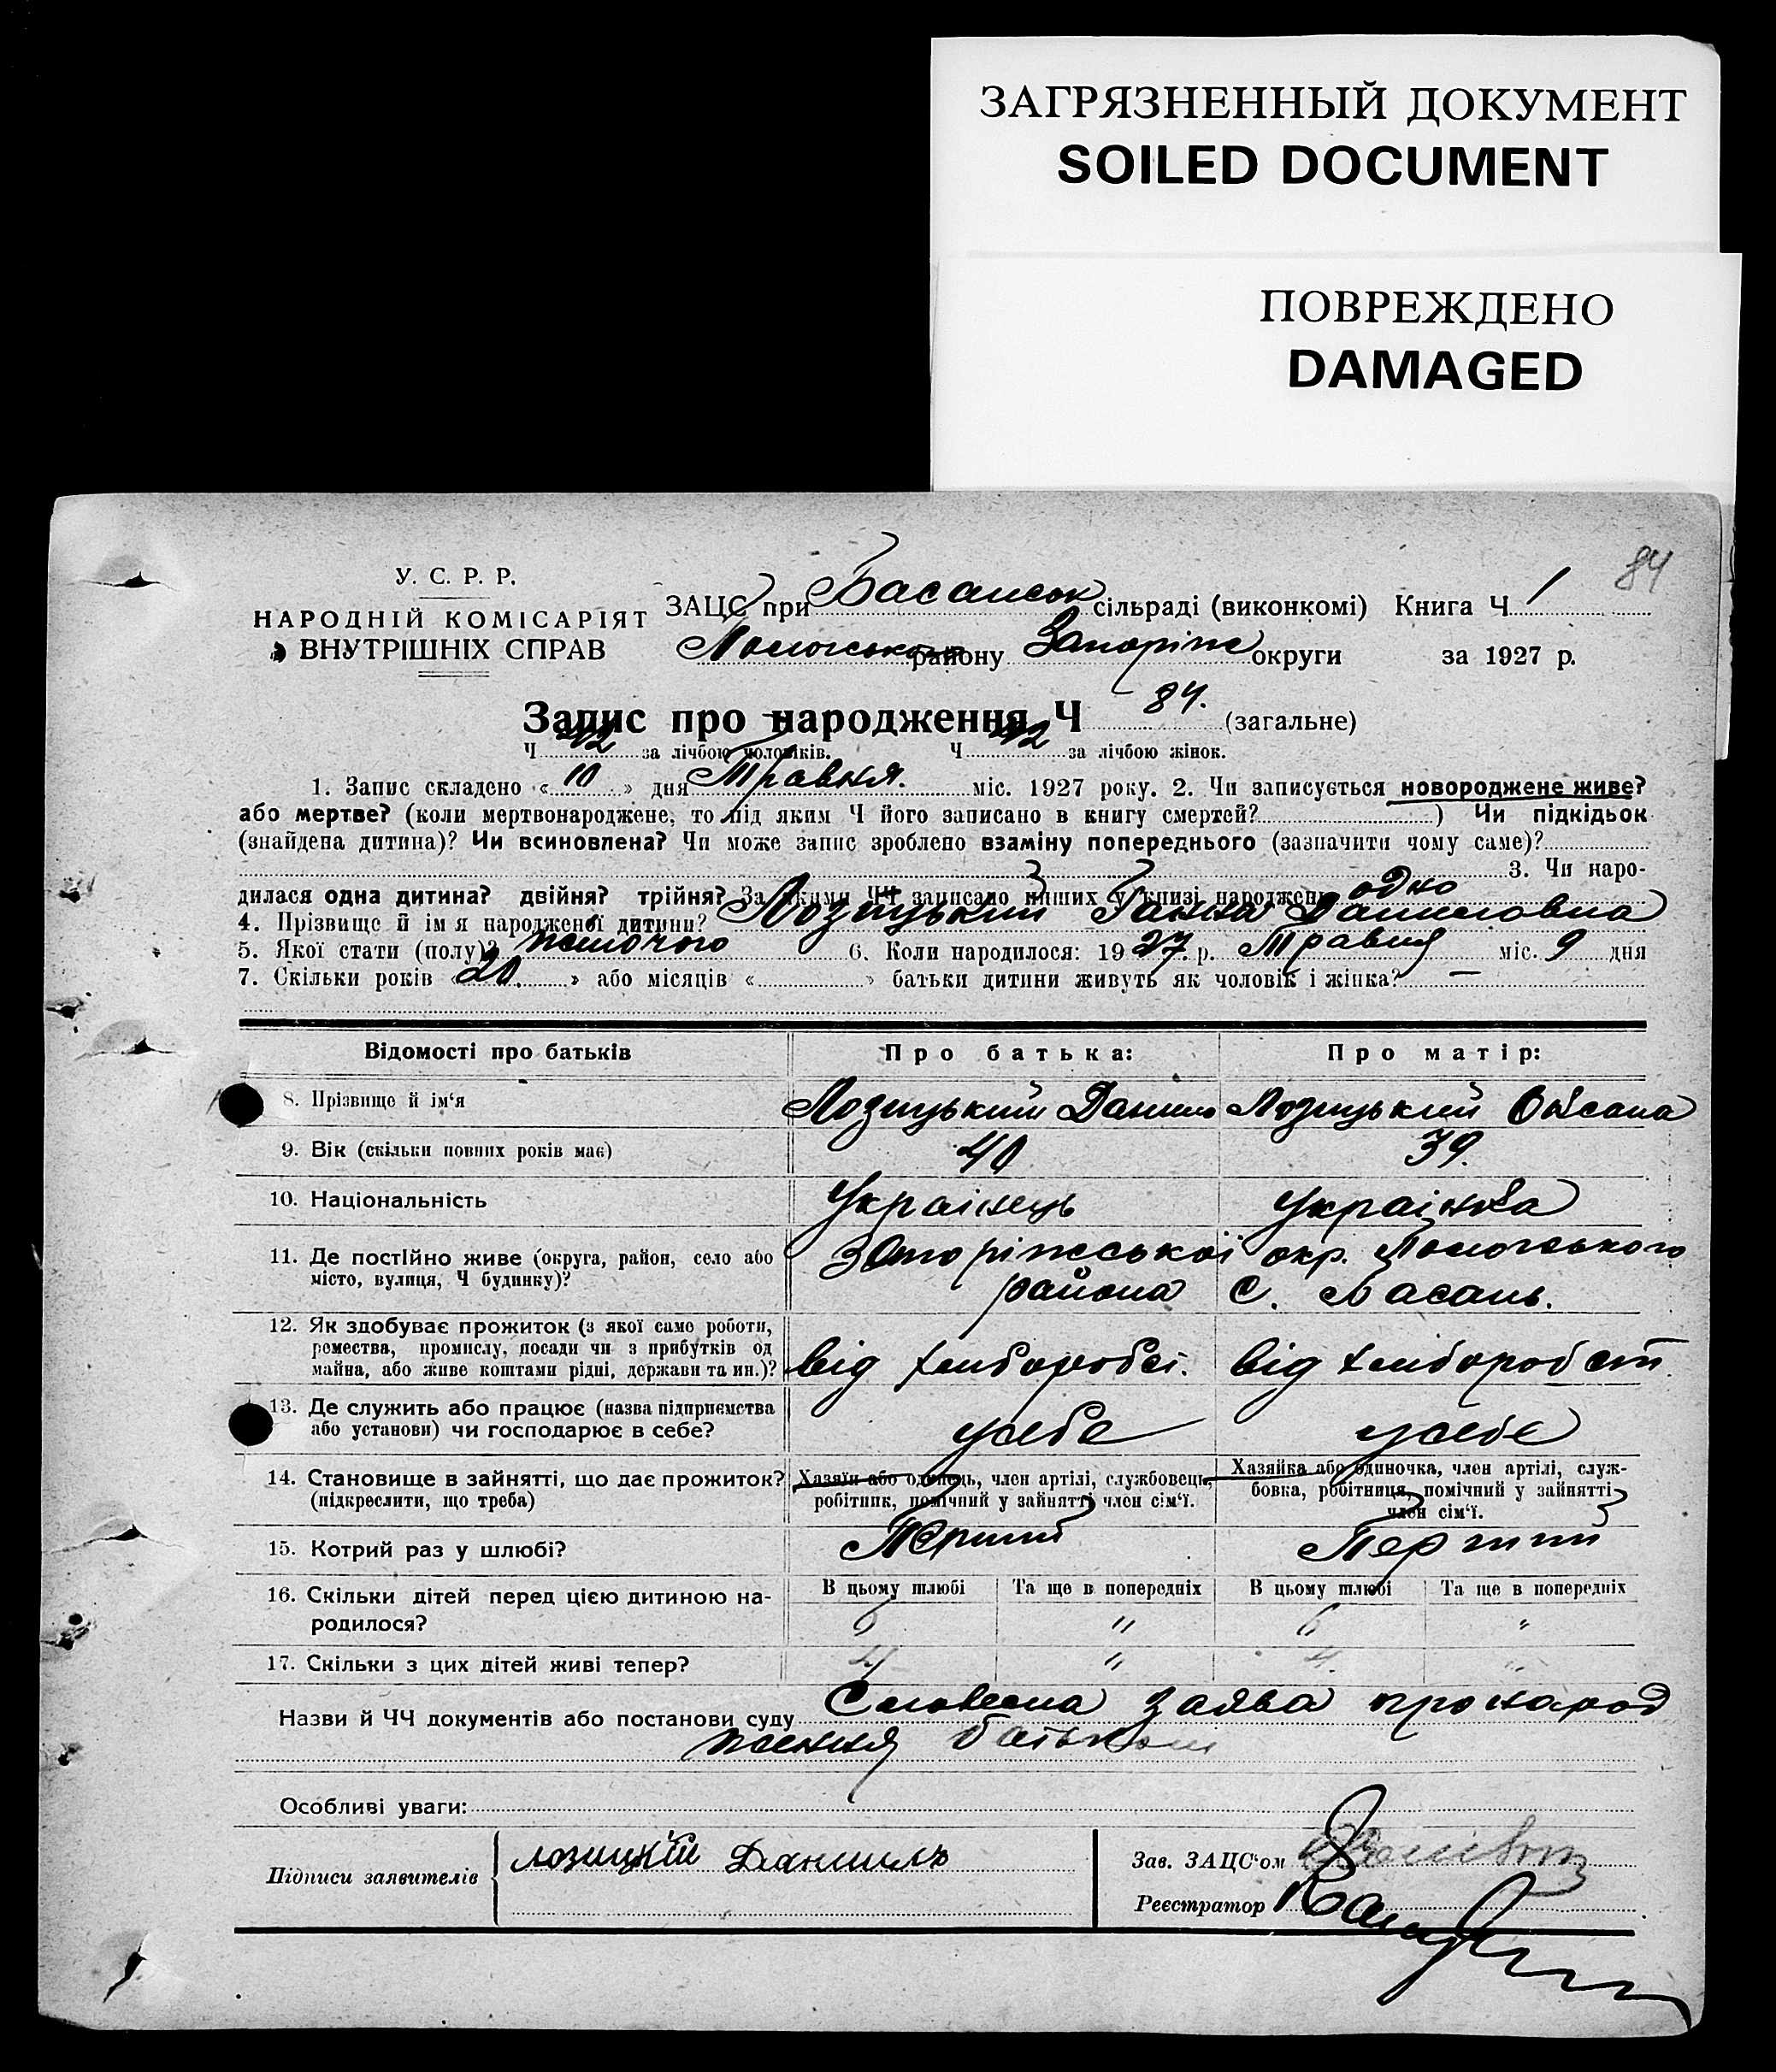 ЗАГРЯЗНЕННЫЙ ДОКУМЕНТ
SOILED DOCUMENT
ПОВРЕЖДЕНО
DAMAGED
84
У. С. Р. Р.
НАРОДНІЙ КОМІСАРІЯТ
ВНУТРІШНІХ СПРАВ
ЗАЦС при Басанськ сільраді (виконкомі) Книга Ч 1
Пологського району Запоріж округи за 1927 р.
Запис про народження Ч 84. (загальне)
Ч 42 за лічбою чоловіків. Ч 42 за лічбою жінок.
1. Запис складено « 10 » дня Травня. міс. 1927 року. 2. Чи записується новороджене живе?
або мертве? (коли мертвонароджене, то під яким Ч його записано в книгу смертей? ) Чи підкідьок
(знайдена дитина)? Чи всиновлена? Чи може запис зроблено взаміну попереднього (зазначити чому саме)?
3. Чи наро-
дилася одна дитина? двійня? трійня? За якими ЧЧ записано інших у книзі народжень одно
4. Прізвище й ім я народженої дитини? Лозицький Ганна Даниловна
5. Якої стати (полу)? жіночого 6. Коли народилося: 1927. р. Травня міс. 9 дня
7. Скільки років « 20. » або місяців « » батьки дитини живуть як чоловік і жінка? —
Відомості про батьків Про батька: Про матір:
8. Прізвище й ім‘я Лозицький Данило Лозицький Оксана
9. Вік (скільки повних років має) 40 39.
10. Національність Українець Українка
11. Де постійно живе (округа, район, село або Запоріжської окр. Пологського
місто, вулиця, Ч будинку)? района С. Басань.
12. Як здобуває прожиток (з якої саме роботи,
ремества, промислу, посади чи з прибутків од
майна, або живе коштами рідні, держави та ин.)? від хлиборобст. від хлиборобст
13. Де служить або працює (назва підприємства
або установи) чи господарює в себе? усебе усебе
14. Становище в зайнятті, що дає прожиток? Хазяїн або одинець, член артілі, службовець, Хазяйка або одиночка, член артілі, служ-
(підкреслити, що треба) робітник, помічний у зайнятті член сім‘ї. бовка, робітниця, помічний у зайнятті
член сім‘ї.
15. Котрий раз у шлюбі? Перший Перший
16. Скільки дітей перед цією дитиною на- В цьому шлюбі Та ще в попередніх В цьому шлюбі Та ще в попередніх
родилося? 6 " 6 "
17. Скільки з цих дітей живі тепер? 4 " 4. "
Назви й ЧЧ документів або постанови суду Словесна заява про народ
ження батьком
Особливі уваги:
Підписи заявителів лозицкій Даниилъ Зав. ЗАЦС‘ом
Реєстратор